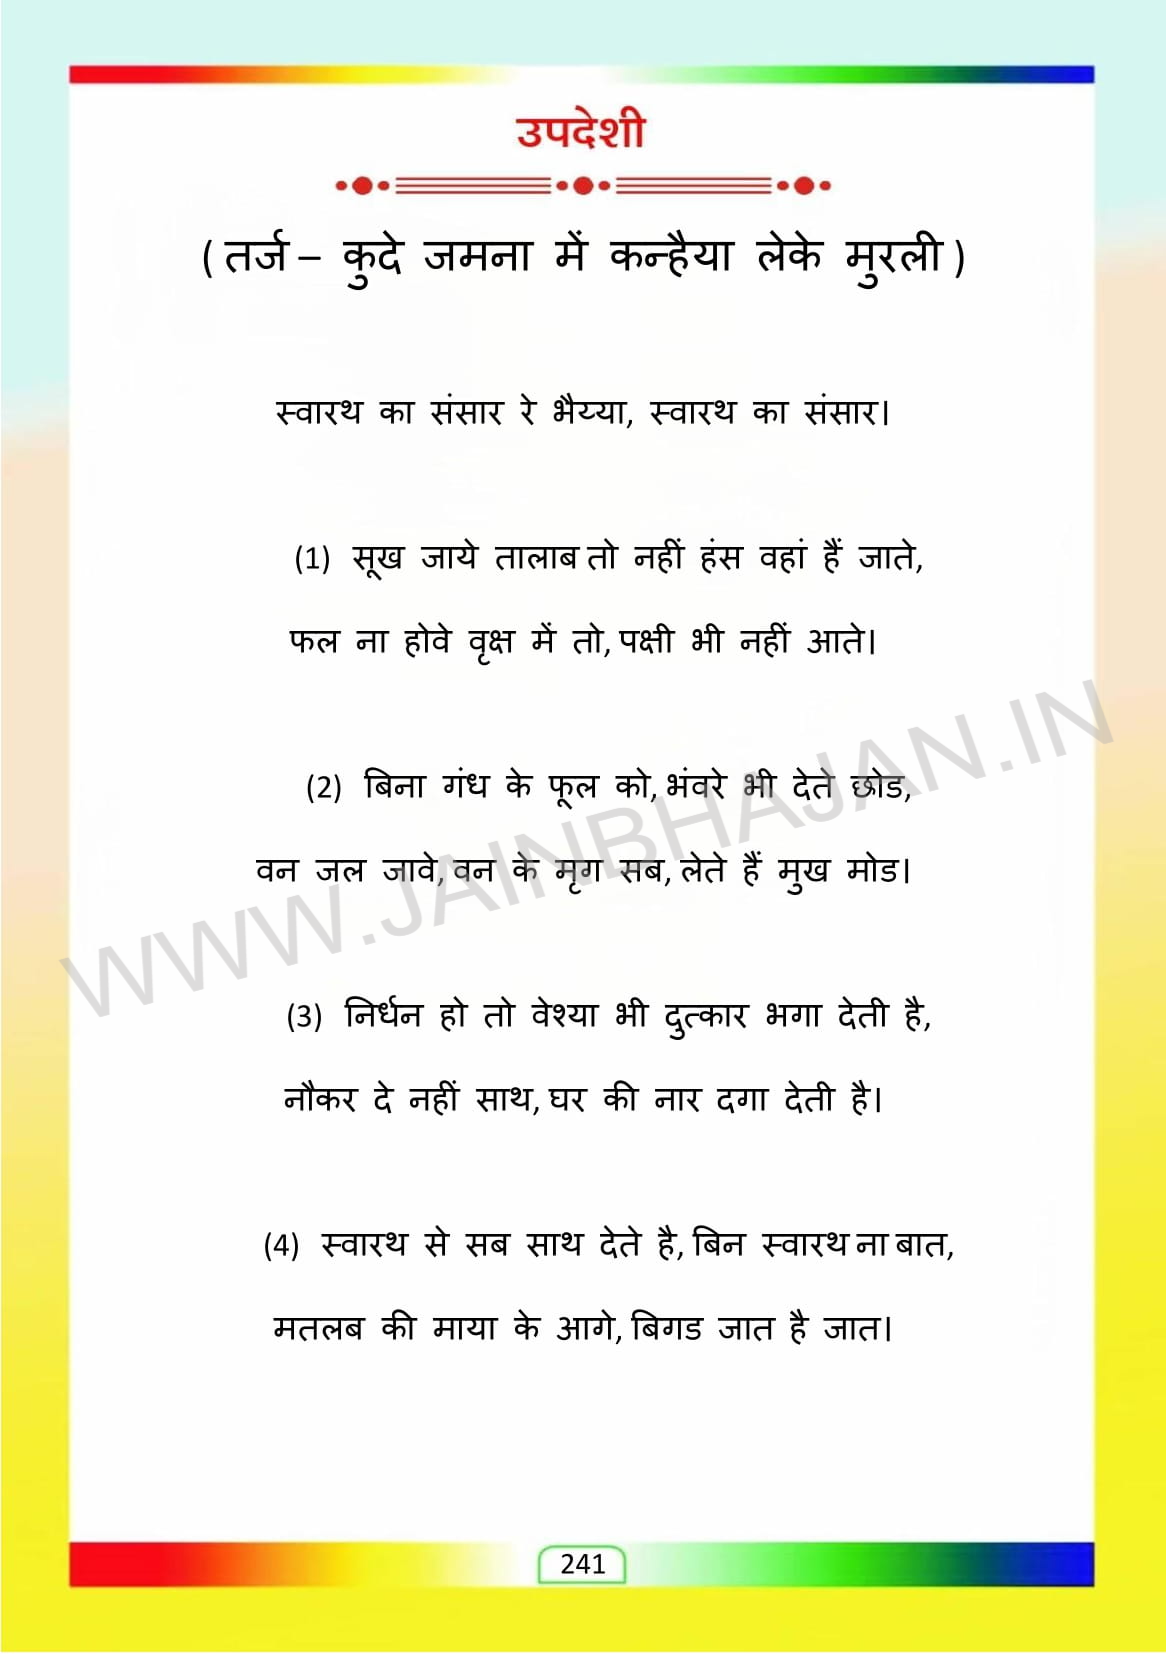 उपदेशी
( तर्ज – कुदे जमना में कन्हैया लेके मुरली )
स्वारथ का संसार रे भैय्या, स्वारथ का संसार।
(1) सूख जाये तालाब तो नहीं हंस वहां हैं जाते,
फल ना होवे वृक्ष में तो, पक्षी भी नहीं आते।
(2) बिना गंध के फूल को, भंवरे भी देते छोड,
वन जल जावे, वन के मृग सब, लेते हैं मुख मोड।
WWW.JAINBHAJAN.IN
(3) निर्धन हो तो वेश्या भी दुत्कार भगा देती है,
नौकर दे नहीं साथ, घर की नार दगा देती है।
(4) स्वारथ से सब साथ देते है, बिन स्वारथ ना बात,
मतलब की माया के आगे, बिगड जात है जात।
241